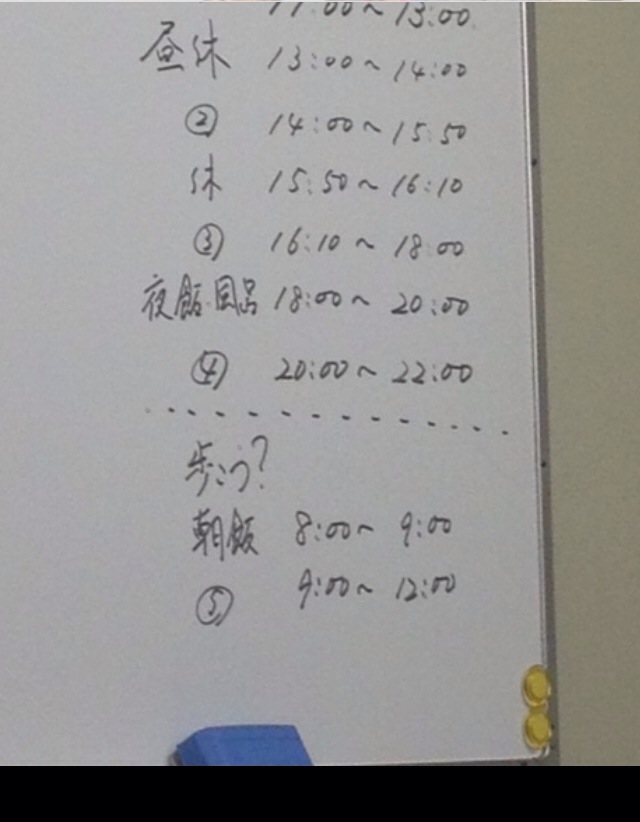 11:00～13:00
昼休 13:00～14:00
② 14:00～15:50
休 15:50～16:10
③ 16:10～18:00
夜飯・風呂 18:00～20:00
④ 20:00～22:00
歩こう?
朝飯 8:00～9:00
⑤ 9:00～12:00